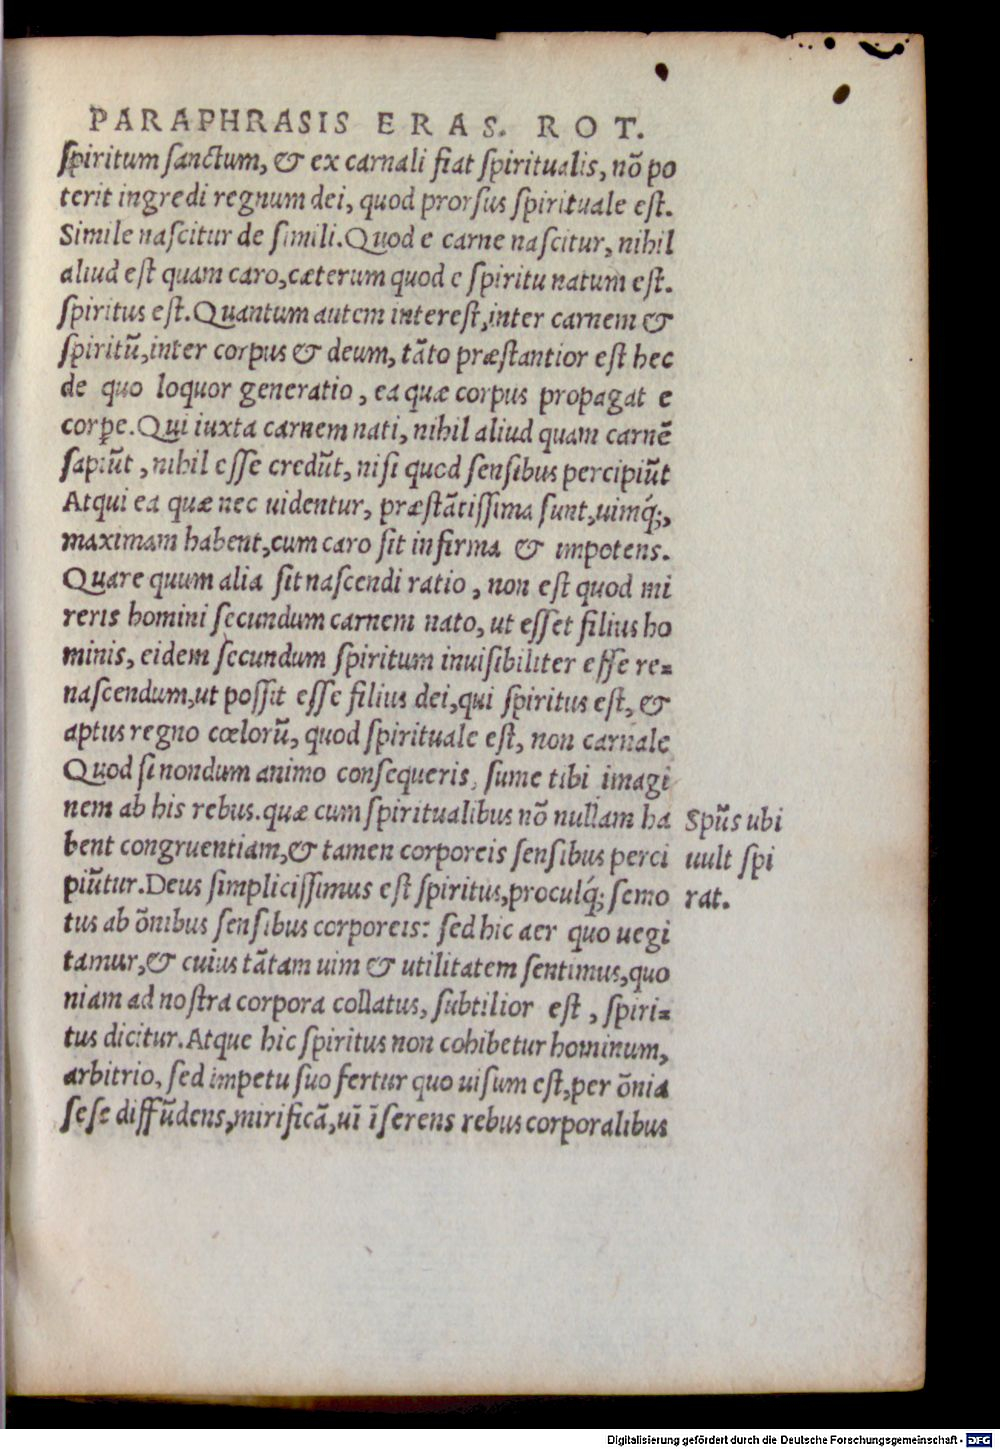 PARAPHRASIS ERAS. ROT.
ſpiritum ſanctum, & ex carnali fiat ſpiritualis, nõ po
terit ingredi regnum dei, quod prorſus ſpirituale eſt.
Simile naſcitur de ſimili. Quod e carne naſcitur, nihil
aliud eſt quam caro, cæterum quod e ſpiritu natum eſt.
ſpiritus eſt. Quantum autem intereſt, inter carnem &
ſpiritũ, inter corpus & deum, tãto præſtantior eſt hec
de quo loquor generatio, ea quæ corpus propagat e
corꝑe. Qui iuxta carnem nati, nihil aliud quam carnẽ
ſapiũt, nihil eſſe credũt, niſi quod ſenſibus percipiũt
Atqui ea quæ nec uidentur, præſtãtiſſima ſunt, uimq́;,
maximam habent, cum caro ſit infirma & impotens.
Quare quum alia ſit naſcendi ratio, non eſt quod mi
reris homini ſecundum carnem nato, ut eſſet filius ho
minis, eidem ſecundum ſpiritum inuiſibiliter eſſe re=
naſcendum, ut poſſit eſſe filius dei, qui ſpiritus eſt, &
aptus regno cœlorũ, quod ſpirituale eſt, non carnale
Quod ſi nondum animo conſequeris, ſume tibi imagi
nem ab his rebus. quæ cum ſpiritualibus nõ nullam ha
bent congruentiam, & tamen corporeis ſenſibus perci
piũtur. Deus ſimpliciſſimus eſt ſpiritus, proculq́; ſemo
tus ab õnibus ſenſibus corporeis: ſed hic aer quo uegi
tamur, & cuius tãtam uim & utilitatem ſentimus, quo
niam ad noſtra corpora collatus, ſubtilior eſt, ſpiri=
tus dicitur. Atque hic ſpiritus non cohibetur hominum,
arbitrio, ſed impetu ſuo fertur quo uiſum eſt, per õnia
ſeſe diffũdens, mirificã, uĩ ĩſerens rebus corporalibus
Spũs ubi
uult ſpi
rat.
Digitalisierung gefördert durch die Deutsche Forschungsgemeinschaft - DFG